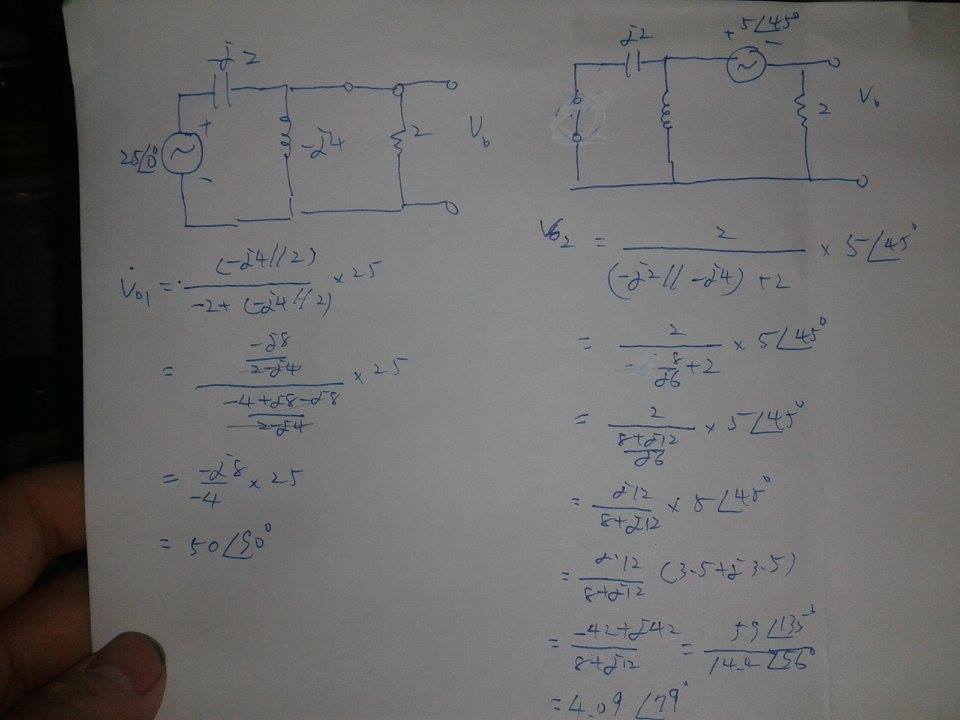 j2
+
25∠0°
-
-j4
2
V₀
V̇₀₁ = (-j4//2) / (-2+(-j4//2)) × 25
= (-j8 / (2-j4)) / ((-4+j8-j8) / (2-j4)) × 25
= -j8 / -4 × 25
= 50∠90°
j2
+ 5∠45° -
2
V₀
V₀₂ = 2 / ((-j2// -j4) +2) × 5∠45°
= 2 / (-8/j6 +2) × 5∠45°
= 2 / ((8+j12) / j6) × 5∠45°
= j12 / (8+j12) × 5∠45°
= j12 / (8+j12) (3.5+j3.5)
= (-42+j42) / (8+j12) = 59∠135° / 14.4∠56°
= 4.09 ∠79°